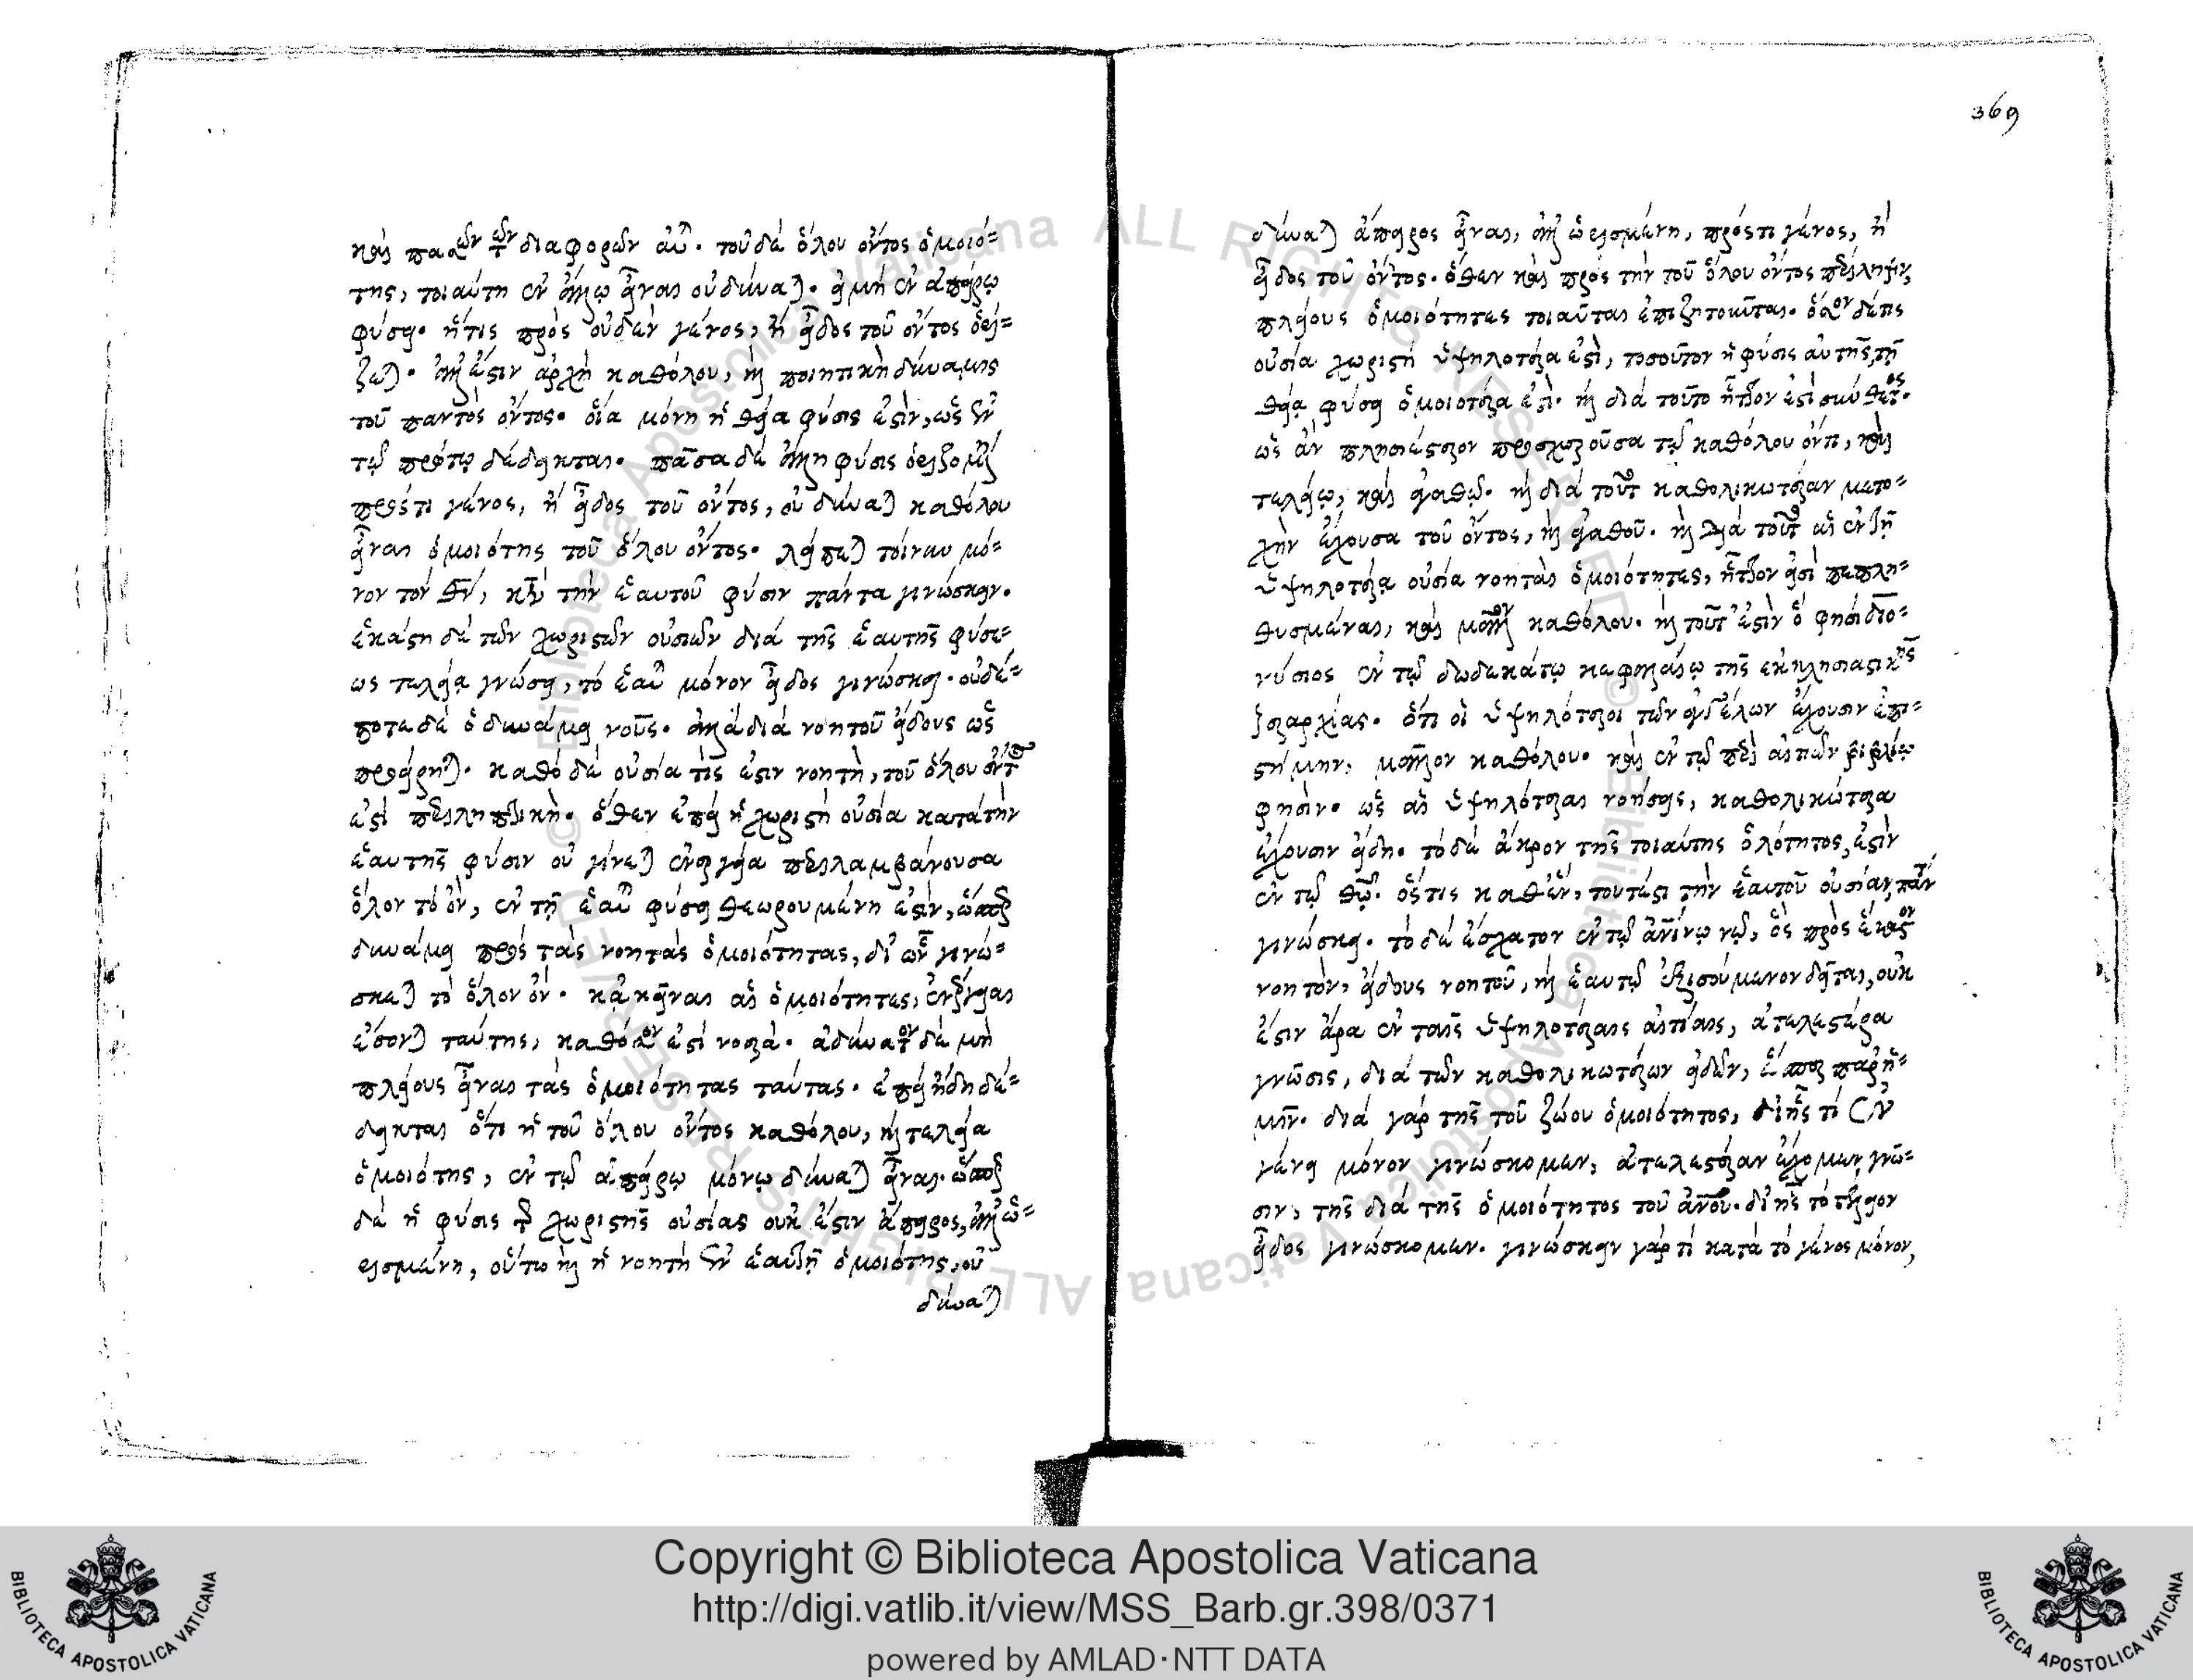 καὶ πασῶν τῶν διαφορῶν αὐτοῦ. τοῦ δὲ ὅλου ὄντος ὁμοιό=
της, τοιαύτη ἐν ἄλλῳ εἶναι οὐ δύναται. εἰ μὴ ἐν ἀπείρῳ
φύσει. ἥτις πρὸς οὐδὲν γένος, ἢ εἶδος τοῦ ὄντος ὁρί=
ζεται. ἀλλ' ἔστιν ἀρχὴ καθόλου, καὶ ποιητικὴ δύναμις
τοῦ παντὸς ὄντος. οἵα μόνη ἡ θεία φύσις ἐστὶν, ὡς ἐν
τῷ πρώτῳ δέδεικται. πᾶσα δὲ ἄλλη φύσις ὁριζομένη
πρός τι γένος, ἢ εἶδος τοῦ ὄντος, οὐ δύναται καθόλου
εἶναι ὁμοιότης τοῦ ὅλου ὄντος. λείπεται τοίνυν μό=
νον τὸν θεὸν, κατὰ τὴν ἑαυτοῦ φύσιν πάντα γινώσκειν.
ἑκάστη δὲ τῶν χωριστῶν οὐσιῶν διὰ τῆς ἑαυτῆς φύσε=
ως τελείᾳ γνώσει, τὸ ἑαυτῆς μόνον εἶδος γινώσκει. οὐδέ=
ποτε δὲ ὁ δυνάμει νοῦς. ἀλλὰ διὰ νοητοῦ εἴδους ὡς
προείρηται. καθὸ δὲ οὐσία τίς ἐστιν νοητὴ, τοῦ ὅλου ὄντος
ἐστὶ περιληπτικὴ. ὅθεν ἐπεὶ ἡ χωριστὴ οὐσία κατὰ τὴν
ἑαυτῆς φύσιν οὐ γίνεται ἐνεργείᾳ περιλαμβάνουσα
ὅλον τὸ ὂν, ἐν τῇ ἑαυτῆς φύσει θεωρουμένη ἐστὶν, ὥσπερ
δυνάμει πρὸς τὰς νοητὰς ὁμοιότητας, δι' ὧν γινώ=
σκεται τὸ ὅλον ὄν. κἀκεῖναι αἱ ὁμοιότητες, ἐνέργειαι
ἔσονται ταύτης, καθόσον ἐστὶ νοερά. ἀδύνατον δὲ μὴ
πλείους εἶναι τὰς ὁμοιότητας ταύτας. ἐπεὶ ἤδη δέ=
δεικται ὅτι ἡ τοῦ ὅλου ὄντος καθόλου, καὶ τελεία
ὁμοιότης, ἐν τῷ ἀπείρῳ μόνῳ δύναται εἶναι. ὥσπερ
δὲ ἡ φύσις τῆς χωριστῆς οὐσίας οὐκ ἔστιν ἄπειρος, ἀλλ' ὡ=
ρισμένη, οὕτω καὶ ἡ νοητὴ ἐν ἑαυτῇ ὁμοιότης, οὐ
δύναται
369
δύναται ἄπειρος εἶναι, ἀλλ' ὡρισμένη, πρός τι γένος, ἢ
εἶδος τοῦ ὄντος. ὅθεν καὶ πρὸς τὴν τοῦ ὅλου ὄντος περίληψιν,
πλείους ὁμοιότητες τοιαῦται ἐπιζητοῦνται. ὅσον δέ τις
οὐσία χωριστὴ ὑψηλοτέρα ἐστὶ, τοσοῦτον ἡ φύσις αὐτῆς, τῇ
θείᾳ φύσει ὁμοιοτέρα ἐστί. καὶ διὰ τοῦτο ἧττον ἐστὶ σύνθετος.
ὡς ἂν πλησιέστερον προσχωροῦσα τῷ καθόλου ὄντι, καὶ
τελείῳ, καὶ ἀγαθῷ. καὶ διὰ τοῦτο καθολικωτέραν μετο=
χὴν ἔχουσα τοῦ ὄντος, καὶ ἀγαθοῦ. καὶ διὰ τοῦτο αἱ ἐν τῇ
ὑψηλοτέρᾳ οὐσίᾳ νοηταὶ ὁμοιότητες, ἧττον εἰσὶ πεπλη=
θυσμέναι, καὶ μᾶλλον καθόλου. καὶ τοῦτ' ἐστὶν ὅ φησι διο=
νύσιος ἐν τῷ δωδεκάτῳ κεφαλαίῳ τῆς ἐκκλησιαστικῆς
ἱεραρχίας. ὅτι οἱ ὑψηλότεροι τῶν ἀγγέλων ἔχουσιν ἐπι=
στήμην, μᾶλλον καθόλου. καὶ ἐν τῷ περὶ αἰτιῶν βιβλίῳ
φησὶν. ὡς αἱ ὑψηλότεραι νοήσεις, καθολικώτερα
ἔχουσιν εἴδη. τὸ δὲ ἄκρον τῆς τοιαύτης ὁλότητος, ἐστὶν
ἐν τῷ θεῷ. ὅστις καθ' ἓν, τουτέστι τὴν ἑαυτοῦ οὐσίαν, πάντα
γινώσκει. τὸ δὲ ἔσχατον ἐν τῷ ἀνθρωπίνῳ νῷ, ὃς πρὸς ἕκαστον
νοητὸν, εἴδους νοητοῦ, καὶ ἑαυτῷ ἐξισούμενον δεῖται, οὐκ
ἔστιν ἄρα ἐν ταῖς ὑψηλοτέραις αἰτίαις, ἀτελεστέρα
γνῶσις, διὰ τῶν καθολικωτέρων εἰδῶν, ὥσπερ παρ' ἡ=
μῖν. διὰ γὰρ τῆς τοῦ ζώου ὁμοιότητος, δι' ἧς τί ἐν
γένει μόνον γινώσκομεν, ἀτελεστέραν ἔχομεν γνῶ=
σιν, τῆς διὰ τῆς ὁμοιότητος τοῦ ἀνθρώπου. δι' ἧς τὸ τέλειον
εἶδος γινώσκομεν. γινώσκειν γάρ τι κατὰ τὸ γένος μόνον,
Copyright © Biblioteca Apostolica Vaticana
http://digi.vatlib.it/view/MSS_Barb.gr.398/0371
powered by AMLAD·NTT DATA